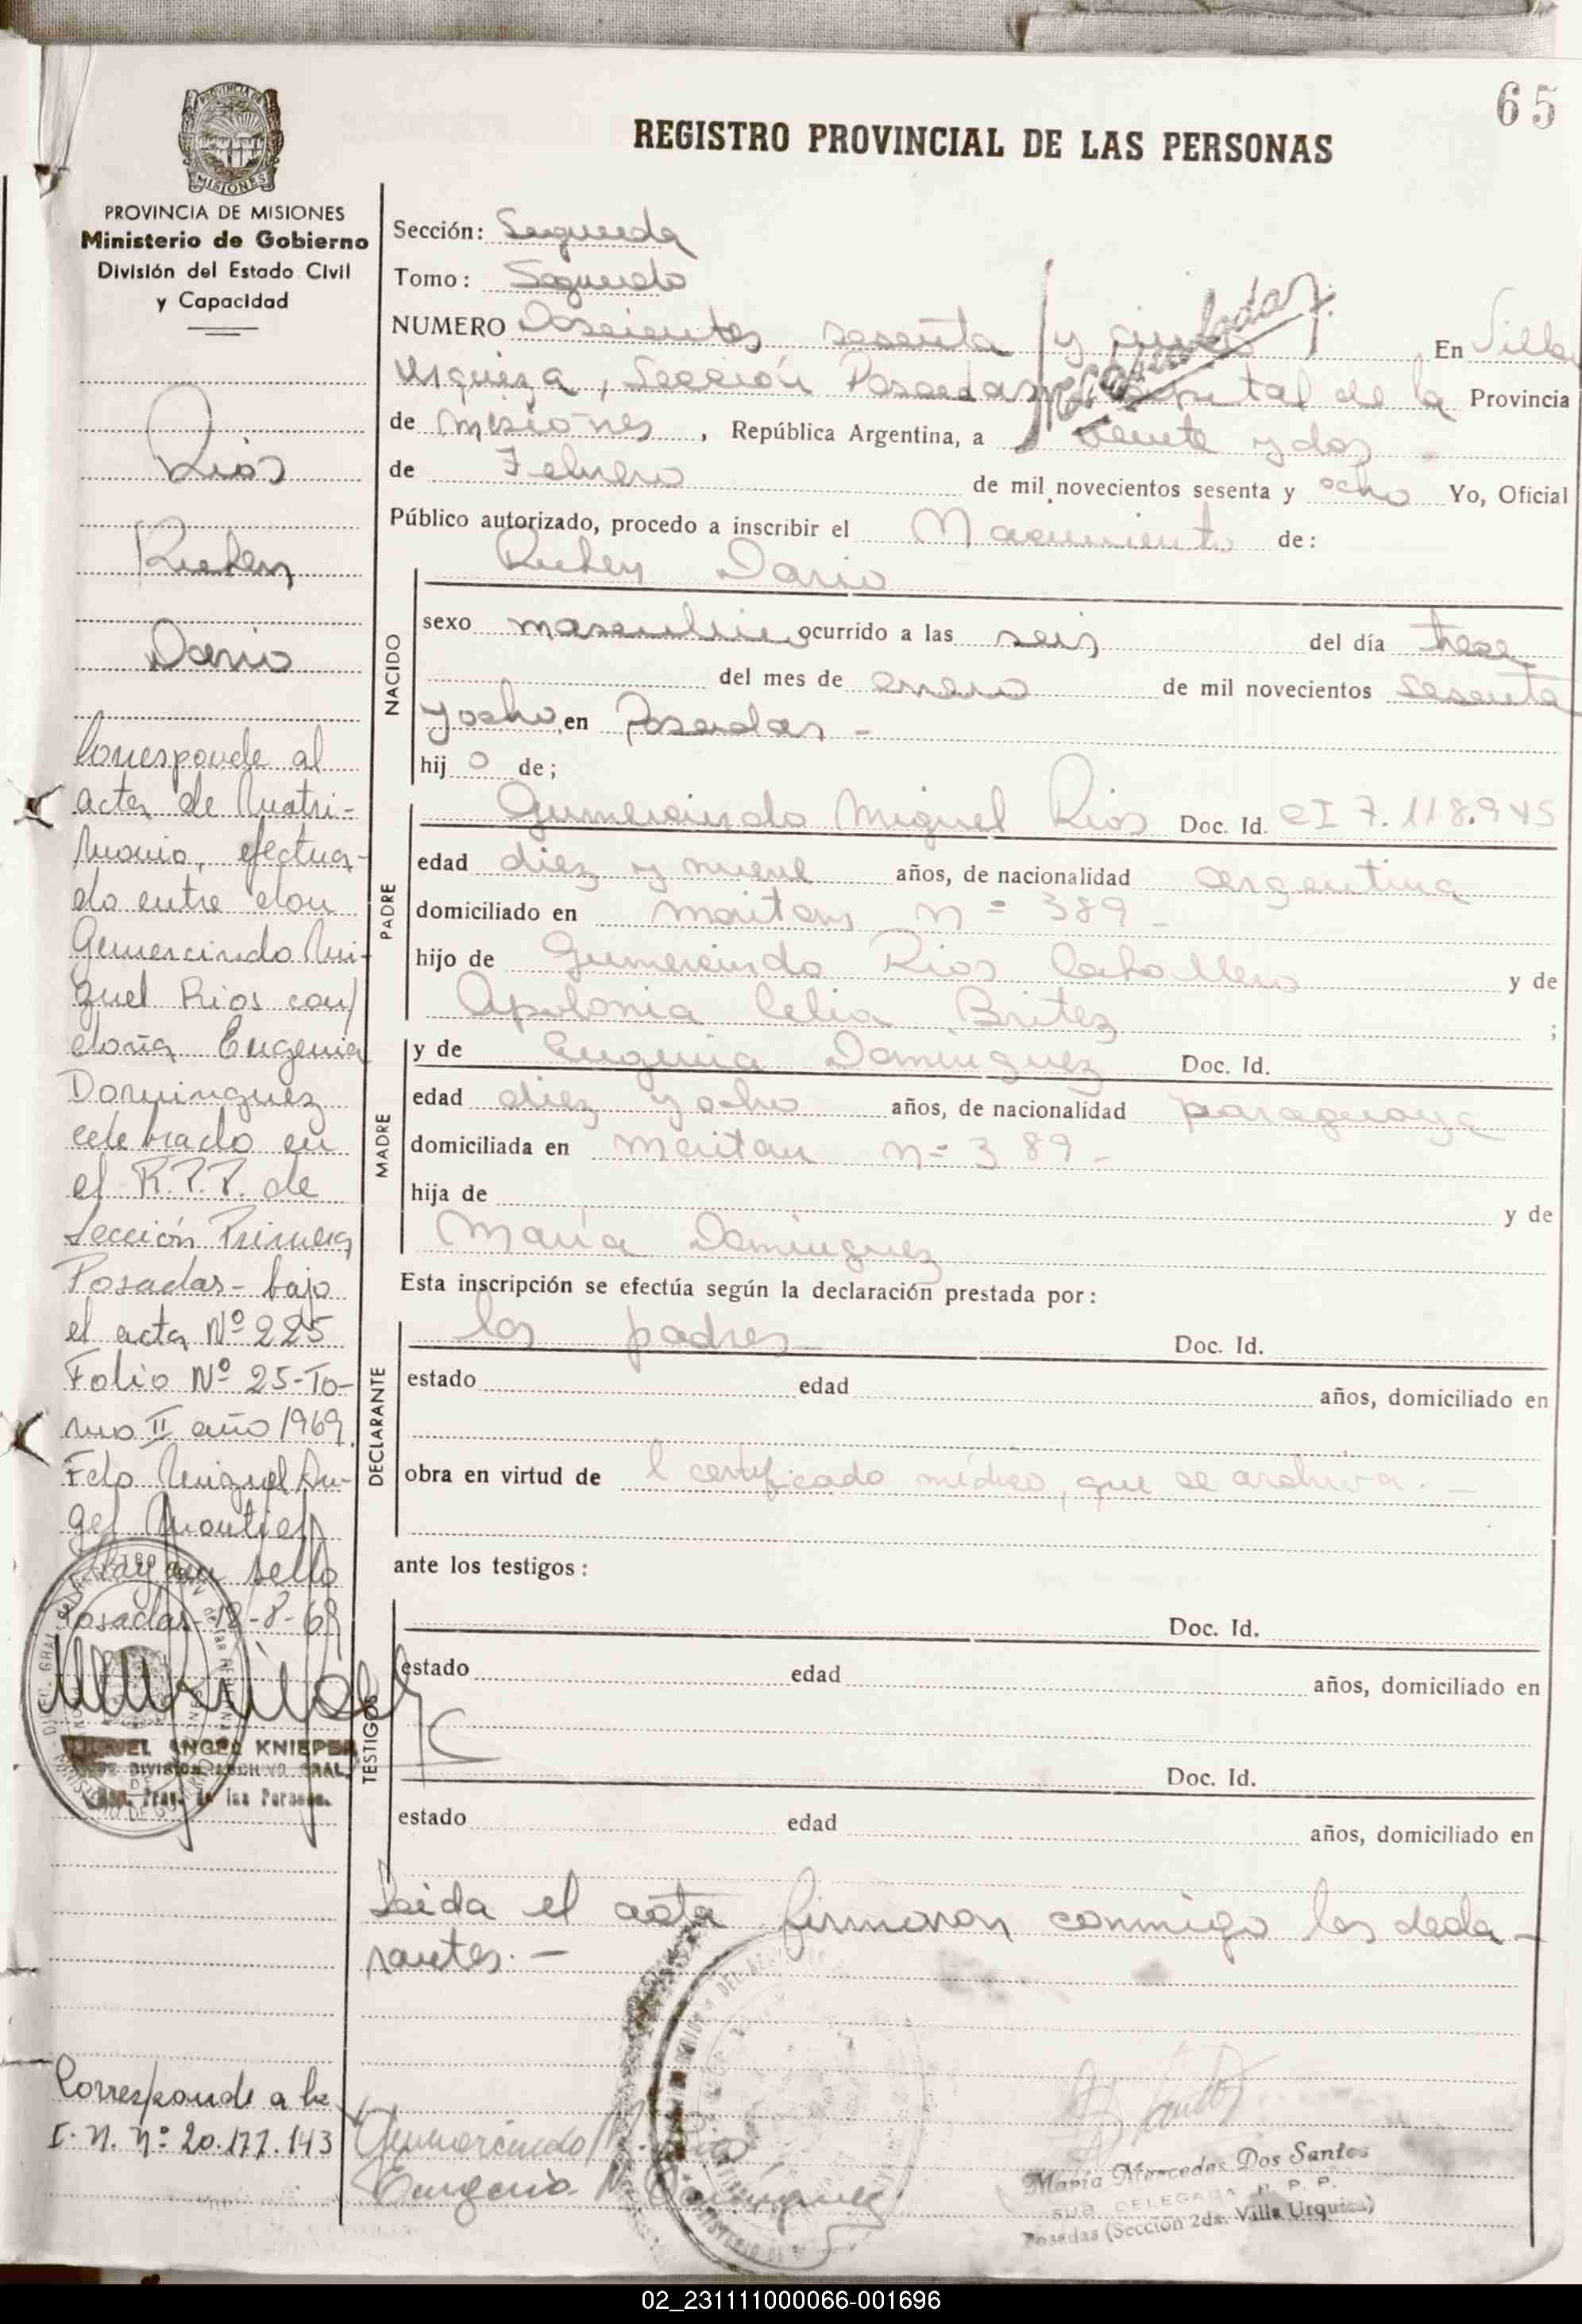 65
REGISTRO PROVINCIAL DE LAS PERSONAS
PROVINCIA DE
MISIONES
PROVINCIA DE MISIONES
Ministerio de Gobierno
División del Estado Civil
y Capacidad
Rios
Ruben
Dario
Corresponde al
acta de Matri-
monio, efectua-
do entre don
Gumercindo Mi-
guel Rios con
doña Eugenia
Dominguez
celebrado en
el R.P.P. de
Sección Primera
Posadas - bajo
el acta Nº 225
Folio Nº 25-To-
mo II año 1969.
Fdo Miguel An-
gel Montiel
Hay un sello
Posadas- 18-8-69
ANGEL KNIEPER
DIVISION ARCHIVO GRAL.
Prov. de las Personas.
Corresponde a la
I. N. Nº 20.177.143
Sección: Segunda
Tomo: Segundo
NUMERO Doscientos sesenta y cinco En Villa
Urquiza, Sección Posadas, Capital de la Provincia
de Misiones, República Argentina, a veinte y dos
de Febrero de mil novecientos sesenta y ocho Yo, Oficial
Público autorizado, procedo a inscribir el Nacimiento de:
NACIDO
Ruben Dario
sexo masculino ocurrido a las seis del día trece
del mes de enero de mil novecientos sesenta
y ocho en Posadas -
hij o de;
PADRE
Gumercindo Miguel Rios Doc. Id. CI 7.118.945
edad diez y nueve años, de nacionalidad argentina
domiciliado en Moritan n= 389 -
hijo de Gumercindo Rios Caballero y de
Apolonia Celia Britez ;
MADRE
y de Eugenia Dominguez Doc. Id.
edad diez y ocho años, de nacionalidad paraguaya
domiciliada en Moritan n= 389 -
hija de y de
María Dominguez
Esta inscripción se efectúa según la declaración prestada por:
DECLARANTE
los padres Doc. Id.
estado edad años, domiciliado en
obra en virtud de l certificado médico, que se archiva. -
ante los testigos:
TESTIGOS
Doc. Id.
estado edad años, domiciliado en
Doc. Id.
estado edad años, domiciliado en
Leida el acta firmaron conmigo los decla-
rantes. -
Gumercindo M. Rios
Eugenia N. Dominguez
Maria Mercedes Dos Santos
SUB DELEGADA R. P. P.
Posadas (Sección 2da. Villa Urquiza)
02_231111000066-001696